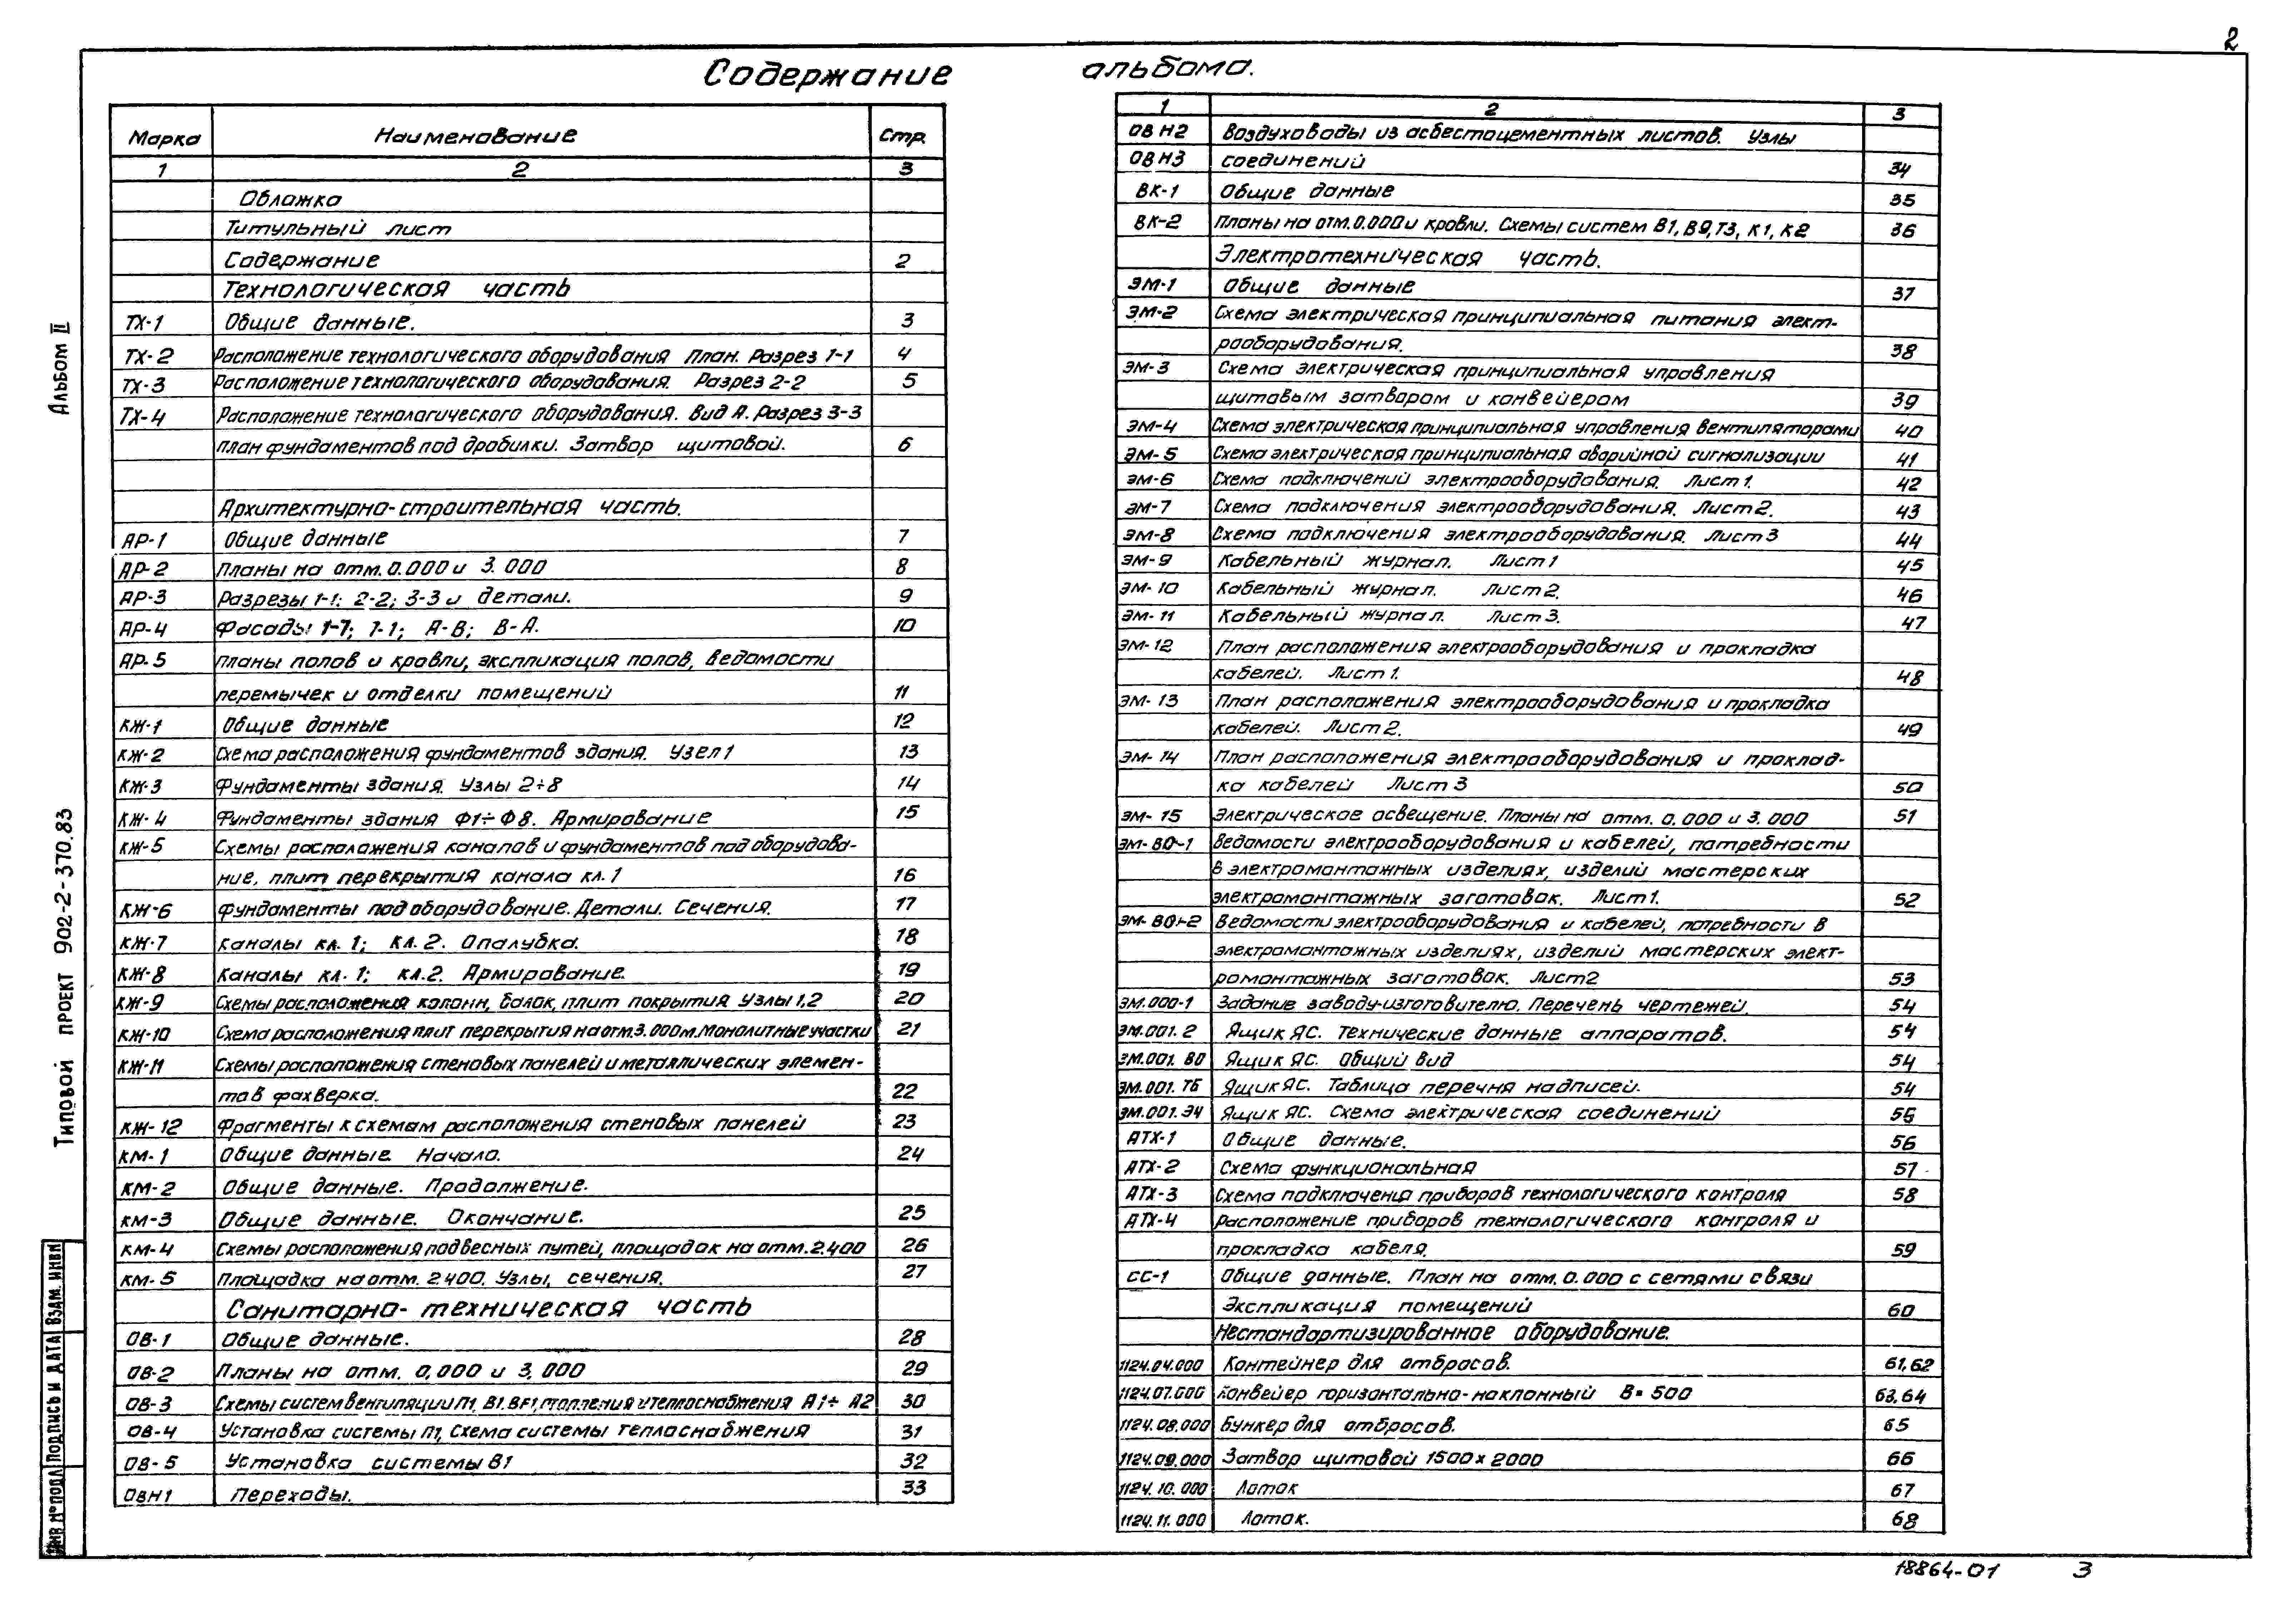 2
Содержание альбома.
Альбом II
Типовой проект 902-2-370.83
Инв № подл Подпись и дата Взам. инв №
Марка Наименование Стр.
1 2 3
Обложка
Титульный лист
Содержание 2
Технологическая часть
ТХ-1 Общие данные. 3
ТХ-2 Расположение технологического оборудования План. Разрез 1-1 4
ТХ-3 Расположение технологического оборудования. Разрез 2-2 5
ТХ-4 Расположение технологического оборудования. Вид А. Разрез 3-3
план фундаментов под дробилки. Затвор щитовой. 6
Архитектурно-строительная часть.
АР-1 Общие данные 7
АР-2 Планы на отм. 0.000 и 3.000 8
АР-3 Разрезы 1-1; 2-2; 3-3 и детали. 9
АР-4 Фасады 1-7; 7-1; А-В; В-А. 10
АР-5 Планы полов и кровли, экспликация полов, ведомости
перемычек и отделки помещений 11
КЖ-1 Общие данные 12
КЖ-2 Схема расположения фундаментов здания. Узел 1 13
КЖ-3 Фундаменты здания. Узлы 2÷8 14
КЖ-4 Фундаменты здания Ф1÷Ф8. Армирование 15
КЖ-5 Схемы расположения каналов и фундаментов под оборудова-
ние, плит перекрытия канала кл.1 16
КЖ-6 Фундаменты под оборудование. Детали. Сечения. 17
КЖ-7 Каналы кл. 1; кл. 2. Опалубка. 18
КЖ-8 Каналы кл. 1; кл. 2. Армирование. 19
КЖ-9 Схемы расположения колонн, балок, плит покрытия Узлы 1,2 20
КЖ-10 Схема расположения плит перекрытия на отм. 3.000 м. Монолитные участки 21
КЖ-11 Схемы расположения стеновых панелей и металлических элемен-
тов фахверка. 22
КЖ-12 Фрагменты к схемам расположения стеновых панелей 23
КМ-1 Общие данные Начало. 24
КМ-2 Общие данные. Продолжение.
КМ-3 Общие данные. Окончание. 25
КМ-4 Схемы расположения подвесных путей, площадок на отм. 2.400 26
КМ-5 Площадка на отм. 2.400. Узлы, сечения. 27
Санитарно-техническая часть
ОВ-1 Общие данные. 28
ОВ-2 Планы на отм. 0,000 и 3,000 29
ОВ-3 Схемы систем вентиляции П1, В1, ВЕ1, отопления и теплоснабжения А1÷А2 30
ОВ-4 Установка системы П1, Схема системы теплоснабжения 31
ОВ-5 Установка системы В1 32
ОВН1 Переходы. 33
1 2 3
ОВ Н2 Воздуховоды из асбестоцементных листов. Узлы
ОВ Н3 соединений 34
ВК-1 Общие данные 35
ВК-2 Планы на отм. 0.000 и кровли. Схемы систем В1, В9, Т3, К1, К2 36
Электротехническая часть.
ЭМ-1 Общие данные 37
ЭМ-2 Схема электрическая принципиальная питания элект-
рооборудования. 38
ЭМ-3 Схема электрическая принципиальная управления
щитовым затвором и конвейером 39
ЭМ-4 Схема электрическая принципиальная управления вентиляторами 40
ЭМ-5 Схема электрическая принципиальная аварийной сигнализации 41
ЭМ-6 Схема подключений электрооборудования. Лист 1. 42
ЭМ-7 Схема подключения электрооборудования. Лист 2. 43
ЭМ-8 Схема подключения электрооборудования. Лист 3 44
ЭМ-9 Кабельный журнал. Лист 1 45
ЭМ-10 Кабельный журнал. Лист 2. 46
ЭМ-11 Кабельный журнал. Лист 3. 47
ЭМ-12 План расположения электрооборудования и прокладка
кабелей. Лист 1. 48
ЭМ-13 План расположения электрооборудования и прокладка
кабелей. Лист 2. 49
ЭМ-14 План расположения электрооборудования и проклад-
ка кабелей Лист 3 50
ЭМ-15 Электрическое освещение. Планы на отм. 0.000 и 3.000 51
ЭМ-ВО-1 Ведомости электрооборудования и кабелей, потребности
в электромонтажных изделиях, изделий мастерских
электромонтажных заготовок. Лист 1. 52
ЭМ-ВО-2 Ведомости электрооборудования и кабелей, потребности в
электромонтажных изделиях, изделий мастерских элект-
ромонтажных заготовок. Лист 2 53
ЭМ.000-1 Задание заводу-изготовителю. Перечень чертежей. 54
ЭМ.001.2 Ящик ЯС. Технические данные аппаратов. 54
ЭМ.001.ВО Ящик ЯС. Общий вид 54
ЭМ.001.ТБ Ящик ЯС. Таблица перечня надписей. 54
ЭМ.001.Э4 Ящик ЯС. Схема электрическая соединений 55
АТХ-1 Общие данные. 56
АТХ-2 Схема функциональная 57
АТХ-3 Схема подключения приборов технологического контроля 58
АТХ-4 Расположение приборов технологического контроля и
прокладка кабеля. 59
СС-1 Общие данные. План на отм. 0.000 с сетями связи
Экспликация помещений 60
Нестандартизированное оборудование.
1124.04.000 Контейнер для отбросов. 61,62
1124.07.000 Конвейер горизонтально-наклонный В=500 63,64
1124.08.000 Бункер для отбросов. 65
1124.09.000 Затвор щитовой 1500×2000 66
1124.10.000 Лоток 67
1124.11.000 Лоток. 68
18864-01 3